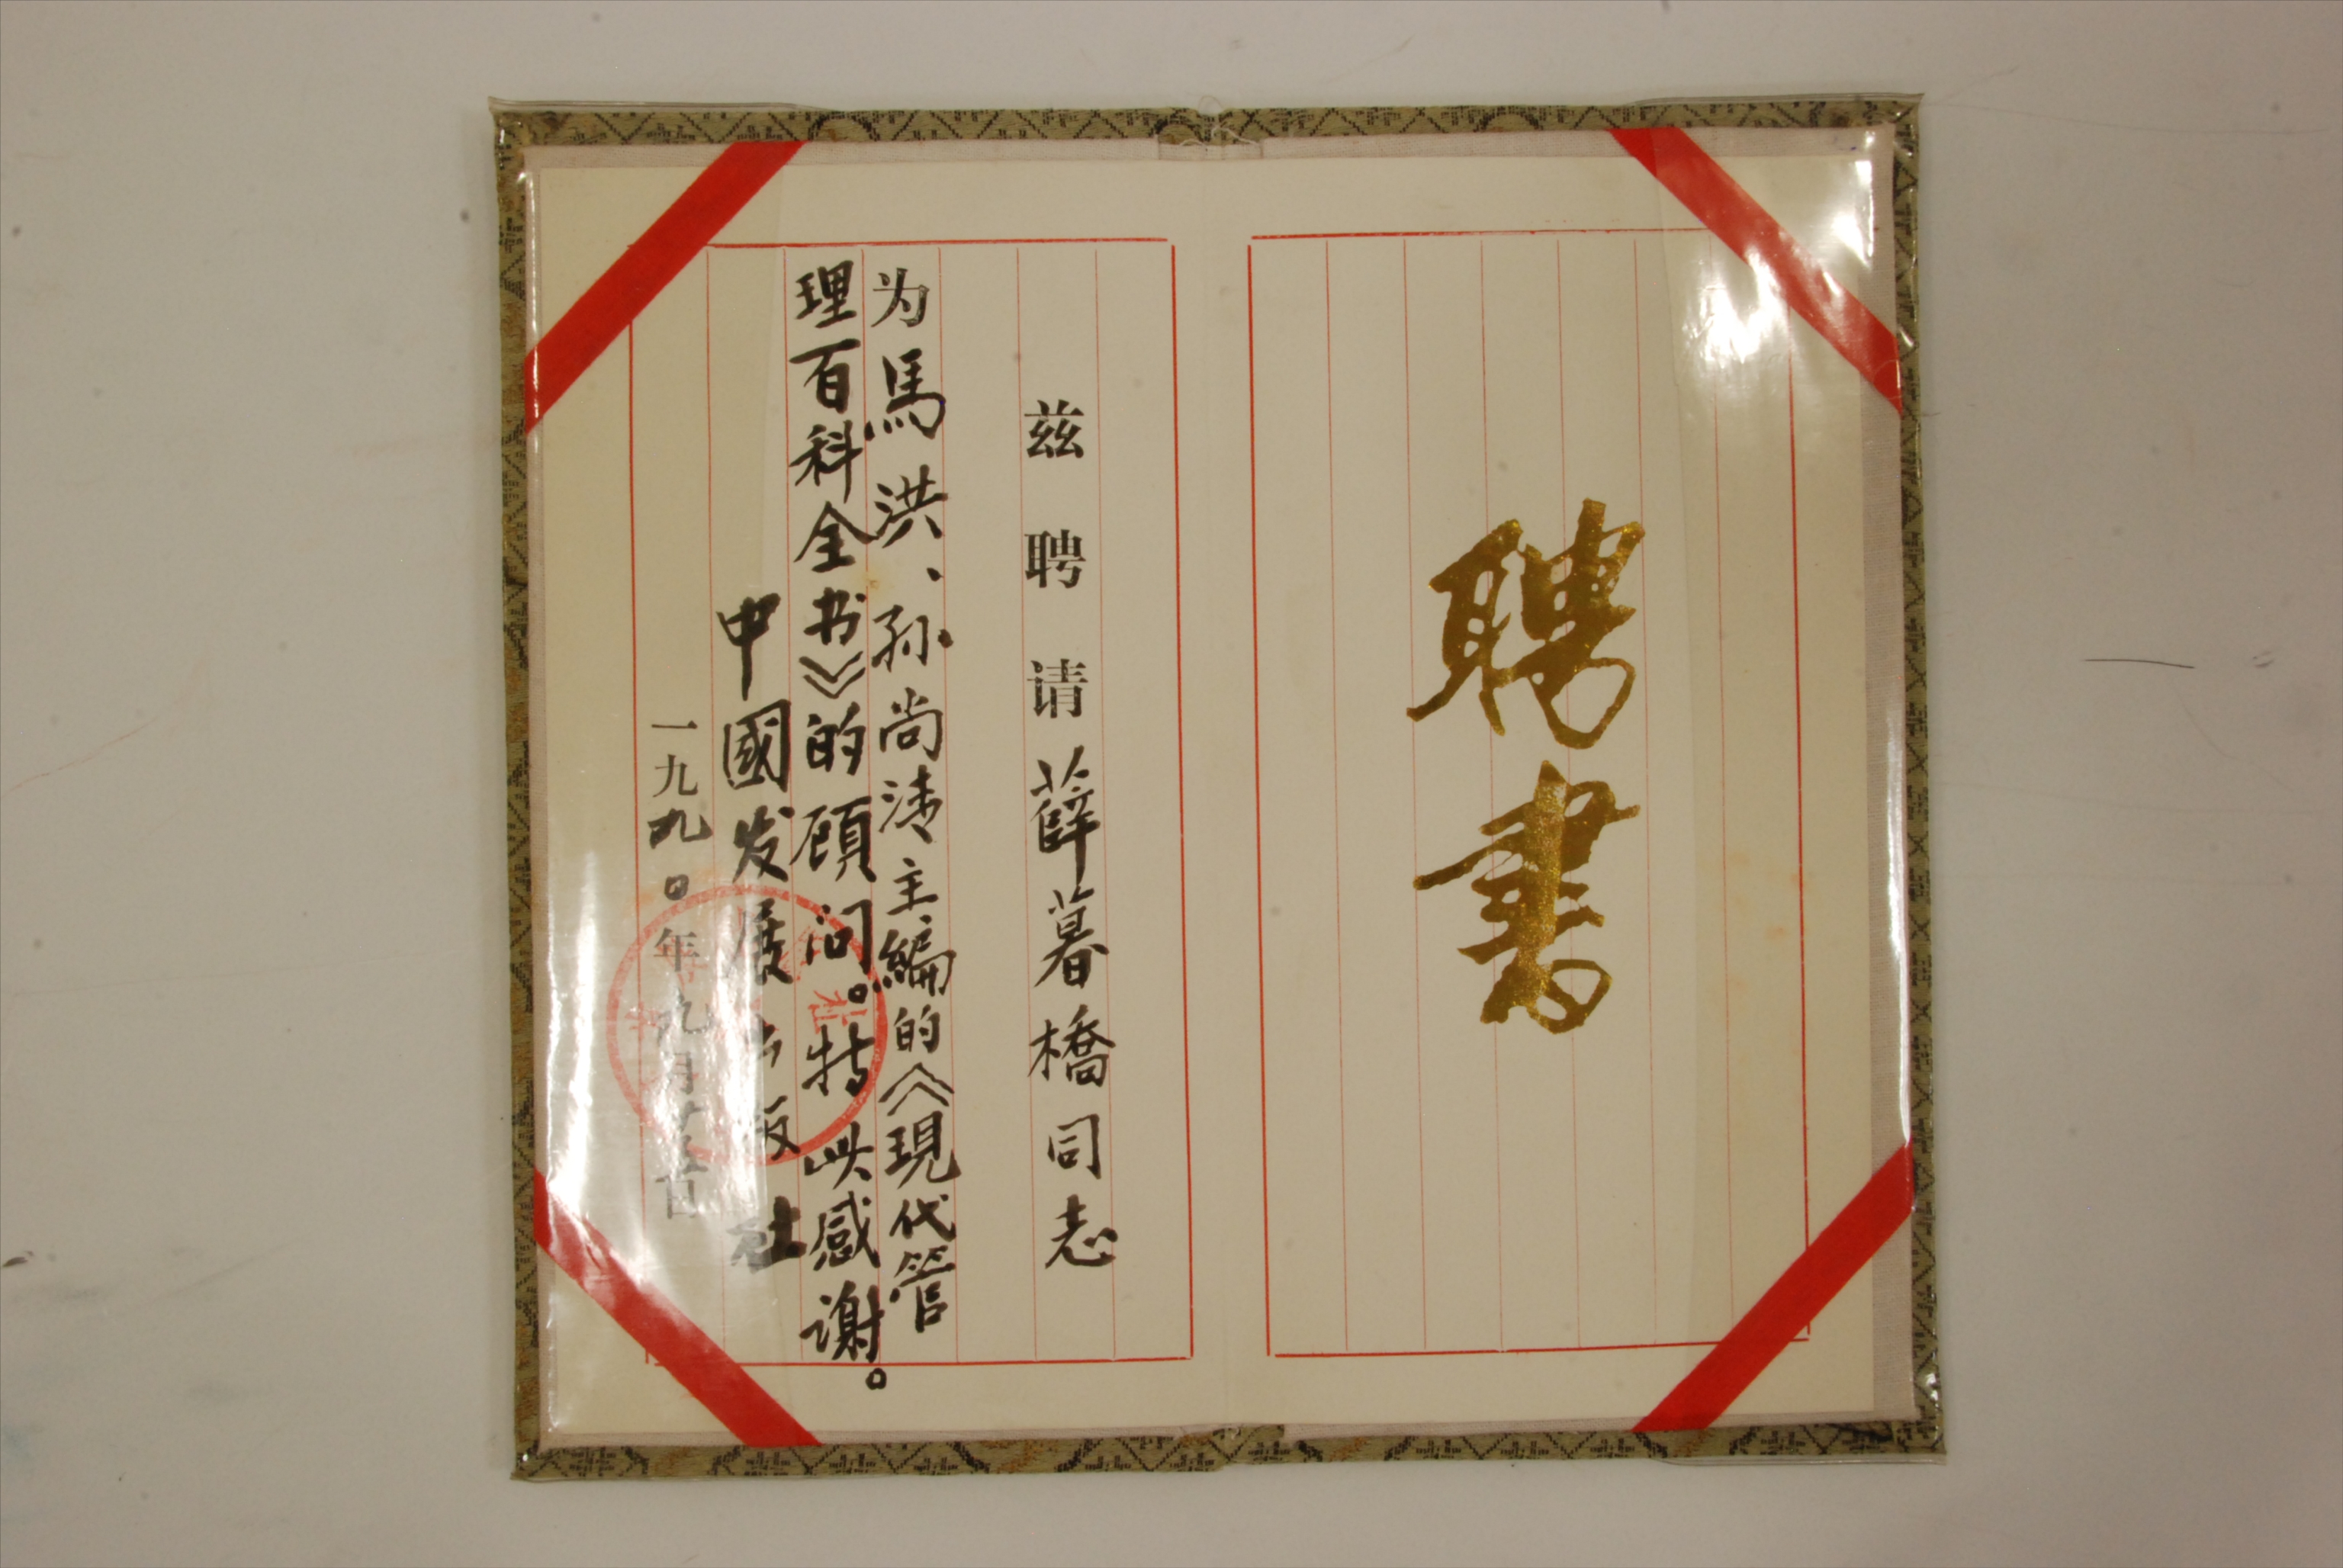 聘書
兹聘请薛暮橋同志
为馬洪、孙尚清主编的《現代管
理百科全书》的顾问。特此感谢。
中國发展出版社
一九九〇年九月廿五日